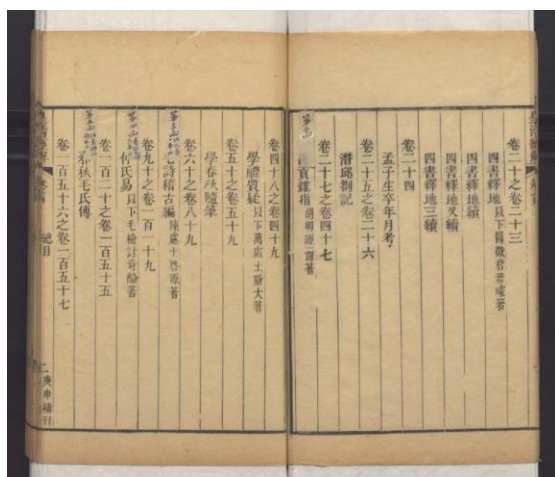 卷二十之卷二十三
四書釋地以下閻徵君若璩著
四書釋地續
四書釋地又續
四書釋地三續
卷二十四
孟子生卒年月考
卷二十五之卷二十六
潛邱劄記
卷二十七之卷四十七
貢錐指胡明經渭著
卷四十八之卷四十九
學禮質疑以下萬處士斯大著
卷五十之卷五十九
學春秋隨筆
卷六十之卷八十九
毛詩稽古編陳處士啓源著
卷九十之卷一百一十九
仲氏易以下毛檢討奇齡著
卷一百二十之卷一百五十五
春秋毛氏傳
卷一百五十六之卷一百五十七
總目
二
庚申補刊